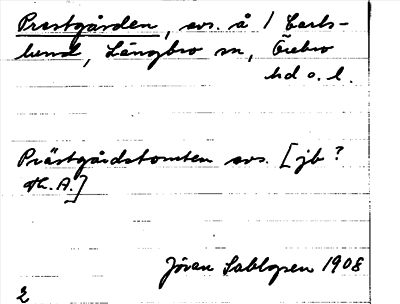 Prestgården, avs. å 1 Carls-
lund, Längbro sn, Örebro
hd o. l.
Prästgårdstomten avs. [jb?
Th. A.]
Jöran Sahlgren 1908
2